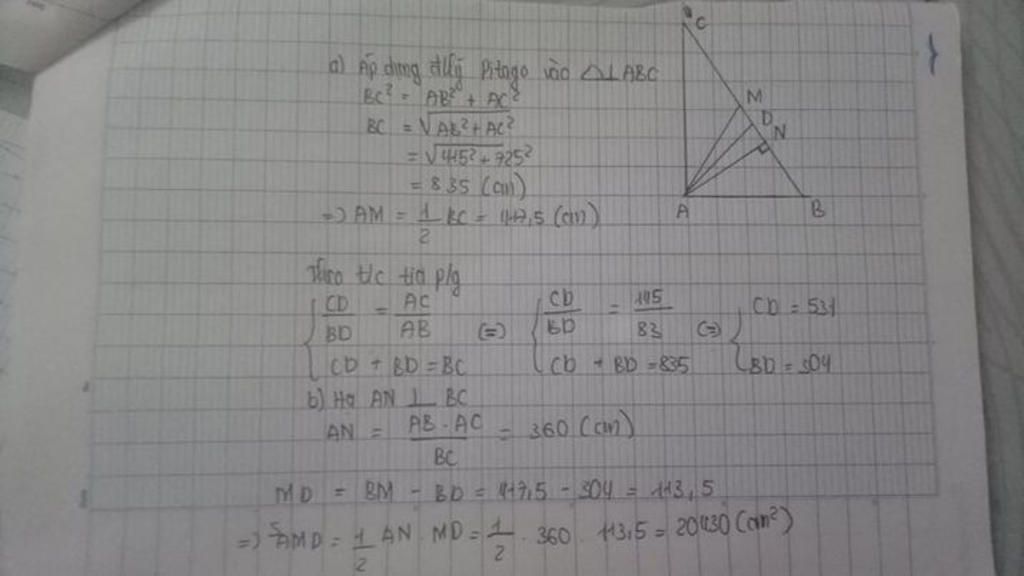 a) Áp dụng đlý Pitago vào △⊥ABC
BC² = AB² + AC²
BC = √AB² + AC²
= √415² + 725²
= 835 (cm)
=) AM = 1/2 BC = 417,5 (cm)
Theo t/c tia p/g
{ CD/BD = AC/AB (=) { CD/BD = 145/83 (=) { CD = 531
CD + BD = BC CD + BD = 835 BD = 304
b) Hạ AN ⊥ BC
AN = AB . AC/BC = 360 (cm)
MD = BM - BD = 417,5 - 304 = 113,5
=) SAMD = 1/2 AN . MD = 1/2 . 360 . 113,5 = 20430 (cm²)
C
M
D
N
A
B